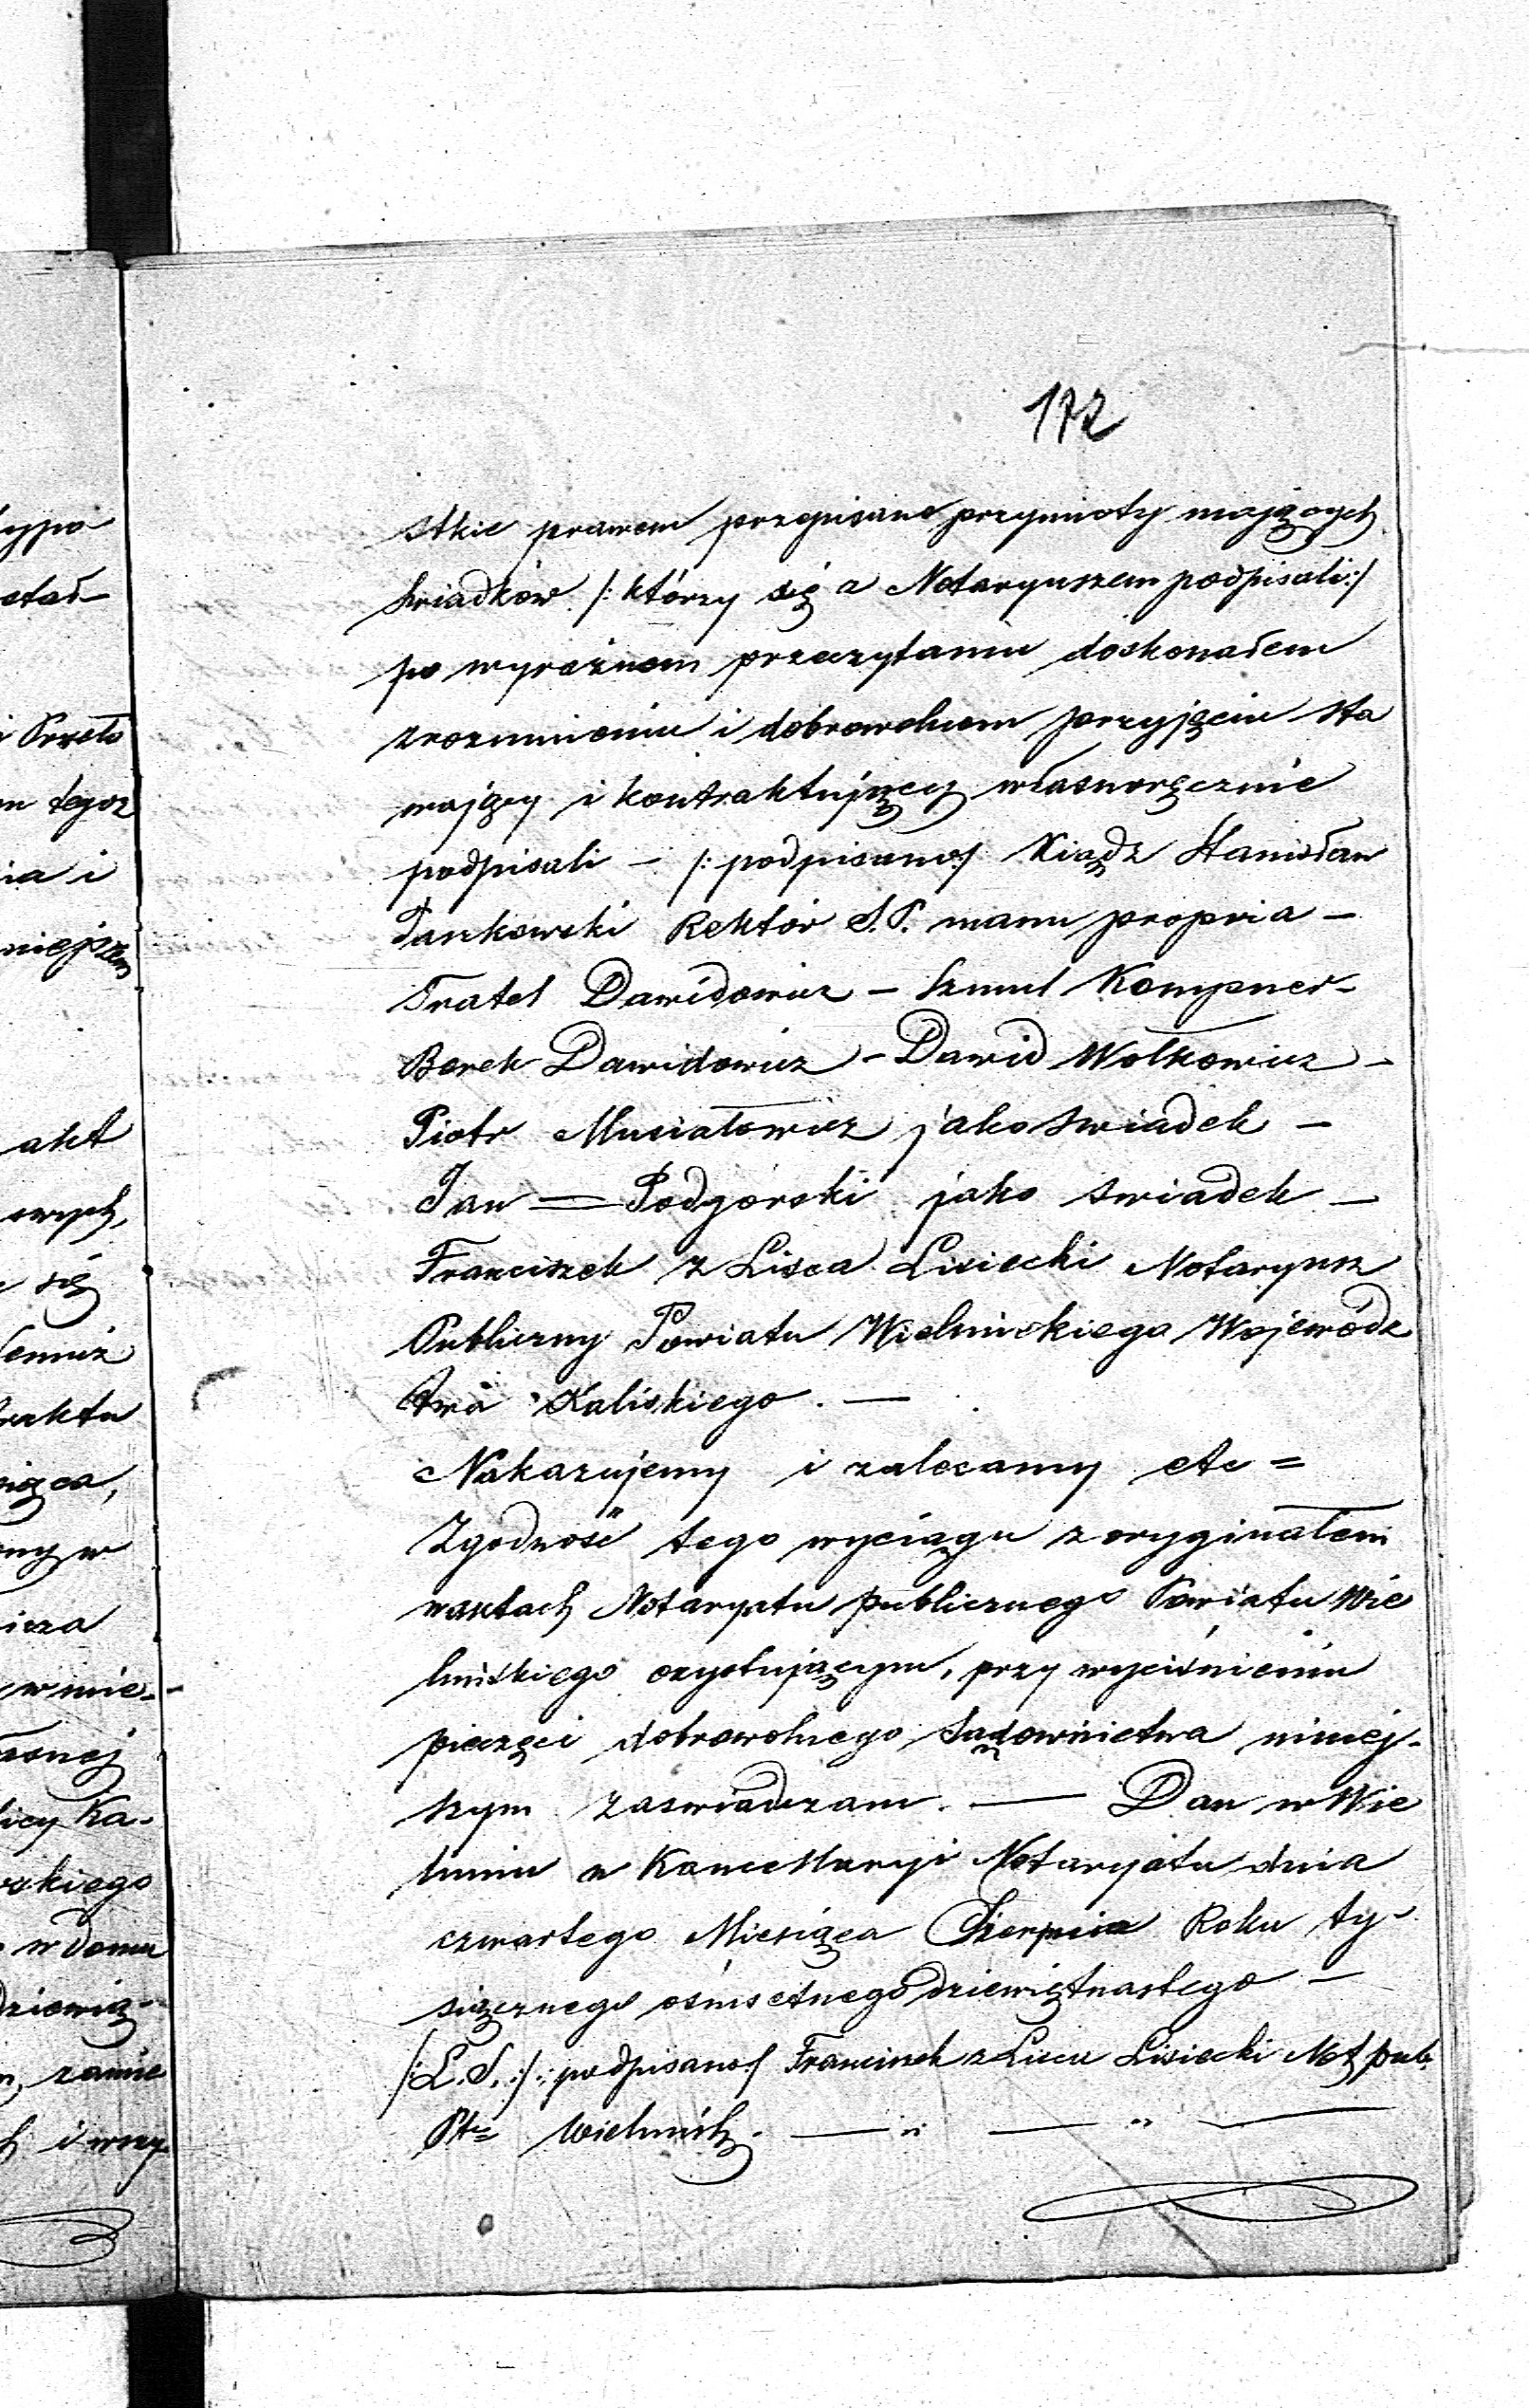 172
stkie prawem przepisane przymioty mających
świadków /: którzy się z Notaryuszem podpisali :/
po wyraźnem przeczytaniu doskonałem
zrozumieniu i dobrowolnem przyjęciu sta
wający i kontraktujący własnoręcznie
podpisali – /: podpisano :/ Xiądz Stanisław
Jankowski Rektór S. P. manu propria –
Dawidowicz – Szmul Kempner –
Berek Dawidowicz – Dawid Wolkowicz –
Piotr Musiałowicz jako swiadek –
Jan = Podgórski jako swiadek –
Franciszek z Lisca Lisiecki Notaryusz
Publiczny Powiatu Wieluńskiego Wojewódz
twa Kaliskiego. –
Nakazujemy i zalecamy etc =
Zgodność tego wyciągu z oryginałem
w aktach Notaryatu publicznego Powiatu Wie
luńskiego exystującym, przy wyciśnieniu
pieczęci dobrowolnego Sądownictwa niniej-
szym zaswiadczam. — Dan w Wie
luniu w Kancellaryi Notaryatu dnia
czwartego Miesiąca Sierpnia Roku ty-
siącznego ośmsetnego dziewiętnastego –
/: L. S. :/ : podpisano / Franciszek z Lisca Lisiecki Not pub.
Ptu Wieluńsk.
ypo
tegoz
nia i
niejszem
akt
się
w
icza
w mie-
Ka-
skiego
w domu
i wszy